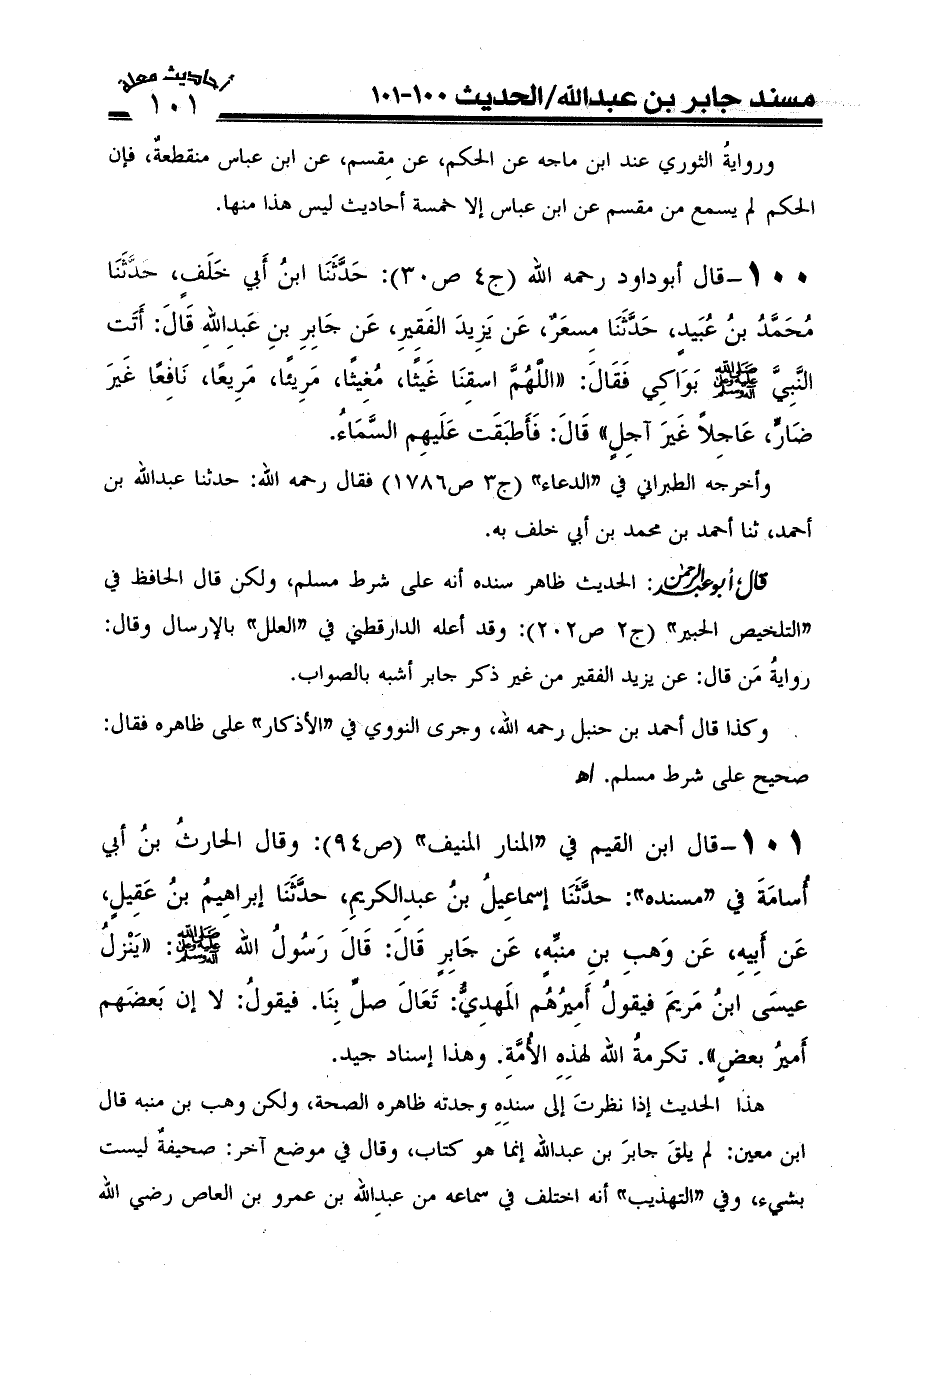 أحاديث معلة
مسند جابر بن عبدالله/الحديث ١٠٠-١٠١
١٠١
ورواية الثوري عند ابن ماجه عن الحكم، عن مِقسم، عن ابن عباس منقطعةٌ، فإن
الحكم لم يسمع من مقسم عن ابن عباس إلا خمسة أحاديث ليس هذا منها.
١٠٠-قال أبوداود رحمه الله (ج٤ ص٣٠): حَدَّثَنَا ابنُ أَبي خَلَفٍ، حَدَّثَنَا
مُحَمَّدُ بنُ عُبَيدٍ، حَدَّثَنَا مِسعَرٌ، عَن يَزِيدَ الفَقِيرِ، عَن جَابِرِ بنِ عَبدِاللهِ قَالَ: أَتَت
النَّبِيَّ ﷺ بَوَاكِي فَقَالَ: «اللَّهُمَّ اسقِنَا غَيثًا، مُغِيثًا، مَرِيئًا، مَرِيعًا، نَافِعًا غَيرَ
ضَارٍّ، عَاجِلاً غَيرَ آجِلٍ» قَالَ: فَأَطبَقَت عَلَيهِم السَّمَاءُ.
وأخرجه الطبراني في «الدعاء» (ج٣ ص١٧٨٦) فقال رحمه الله: حدثنا عبدالله بن
أحمد، ثنا أحمد بن محمد بن أبي خلف به.
قال أبو عبدالرحمن: الحديث ظاهر سنده أنه على شرط مسلم، ولكن قال الحافظ في
«التلخيص الحبير» (ج٢ ص٢٠٢): وقد أعله الدارقطني في «العلل» بالإرسال وقال:
روايةُ مَن قال: عن يزيد الفقير من غير ذكر جابر أشبه بالصواب.
وكذا قال أحمد بن حنبل رحمه الله، وجرى النووي في «الأذكار» على ظاهره فقال:
صحيح على شرط مسلم. اهـ
١٠١-قال ابن القيم في «المنار المنيف» (ص٩٤): وقال الحارثُ بنُ أبي
أُسامَةَ في «مسنده»: حدَّثَنَا إسماعيلُ بنُ عبدِالكريمِ، حدَّثَنَا إبراهيمُ بنُ عَقِيلٍ،
عَن أَبِيهِ، عَن وَهبِ بنِ منبِّهٍ، عَن جَابِرٍ قَالَ: قَالَ رَسُولُ الله ﷺ: «يَنْزِلُ
عيسَى ابنُ مَريمَ فيقولُ أَميرُهُم المَهديُّ: تَعَالَ صلِّ بِنَا. فيقولُ: لا إن بَعضَهم
أَميرُ بعضٍ». تكرمةُ الله لهذِهِ الأُمَّةِ. وهذا إسناد جيد.
هذا الحديث إذا نظرتَ إلى سندِهِ وجدته ظاهره الصحة، ولكن وهب بن منبه قال
ابن معين: لم يلقَ جابرَ بن عبدالله إنما هو كتاب، وقال في موضع آخر: صحيفةٌ ليست
بشيء، وفي «التهذيب» أنه اختلف في سماعه من عبدِالله بن عمرو بن العاص رضي الله